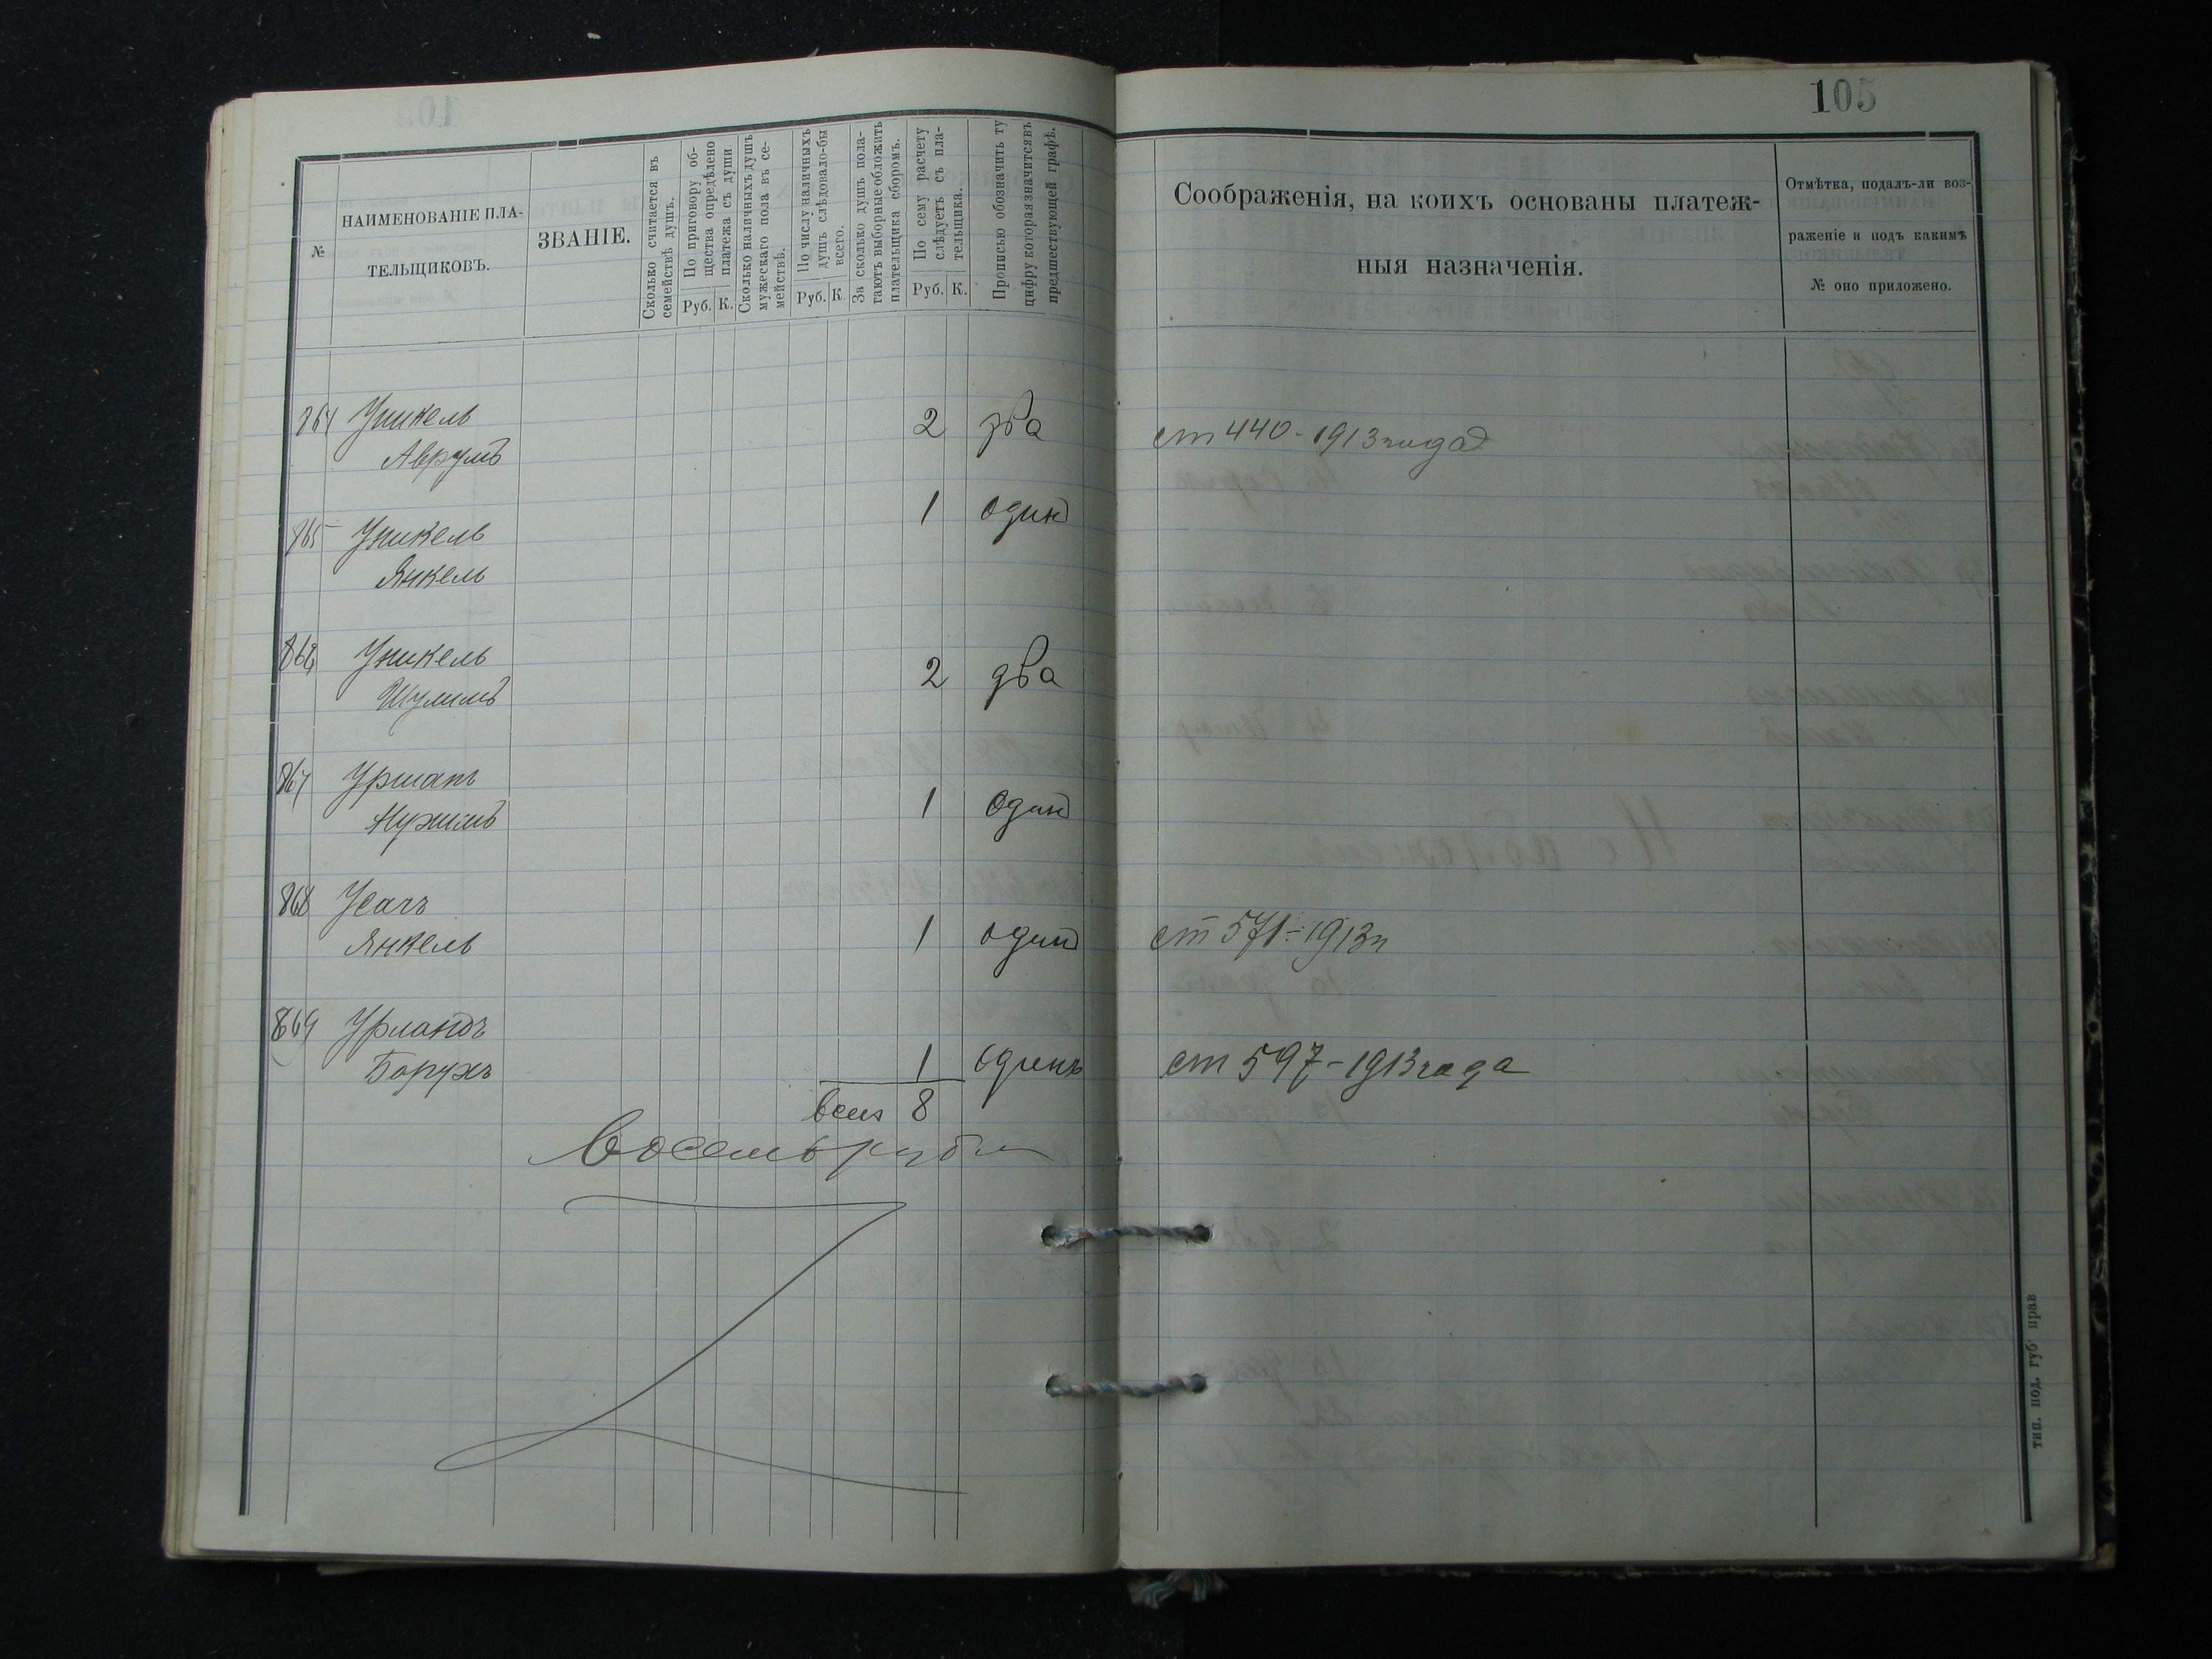 105
№
НАИМЕНОВАНІЕ ПЛА-
ТЕЛЬЩИКОВЪ.
ЗВАНІЕ.
Сколько считается въ
семействѣ душъ.
По приговору об-
щества опредѣлено
платежа съ души
Руб. К.
Сколько наличныхъ душъ
мужескаго пола въ се-
мействѣ.
По числу наличныхъ
душъ слѣдовало-бы
всего.
Руб. К.
За сколько душъ пола-
гаютъ выборные обложить
плательщика сборомъ.
По сему расчету
слѣдуетъ съ пла-
тельщика.
Руб. К.
Прописью обозначить ту
цифру которая значится въ
предшествующей графѣ.
Соображенія, на коихъ основаны платеж-
ныя назначенія.
Отмѣтка, подалъ-ли воз-
раженіе и подъ какимъ
№ оно приложено.
864 Уникель 2 два ст 440-1913 года
Аврумъ
865 Уникель 1 один
Янкель
866 Уникель 2 два
Шулимъ
867 Урман
Нухимъ 1 один
868 Усачъ
Янкель 1 один ст 571-1913 г
869 Урландъ
Борухъ 1 одинъ ст 597-1913 года
всего 8
Восемь руб
тип. под. губ. прав